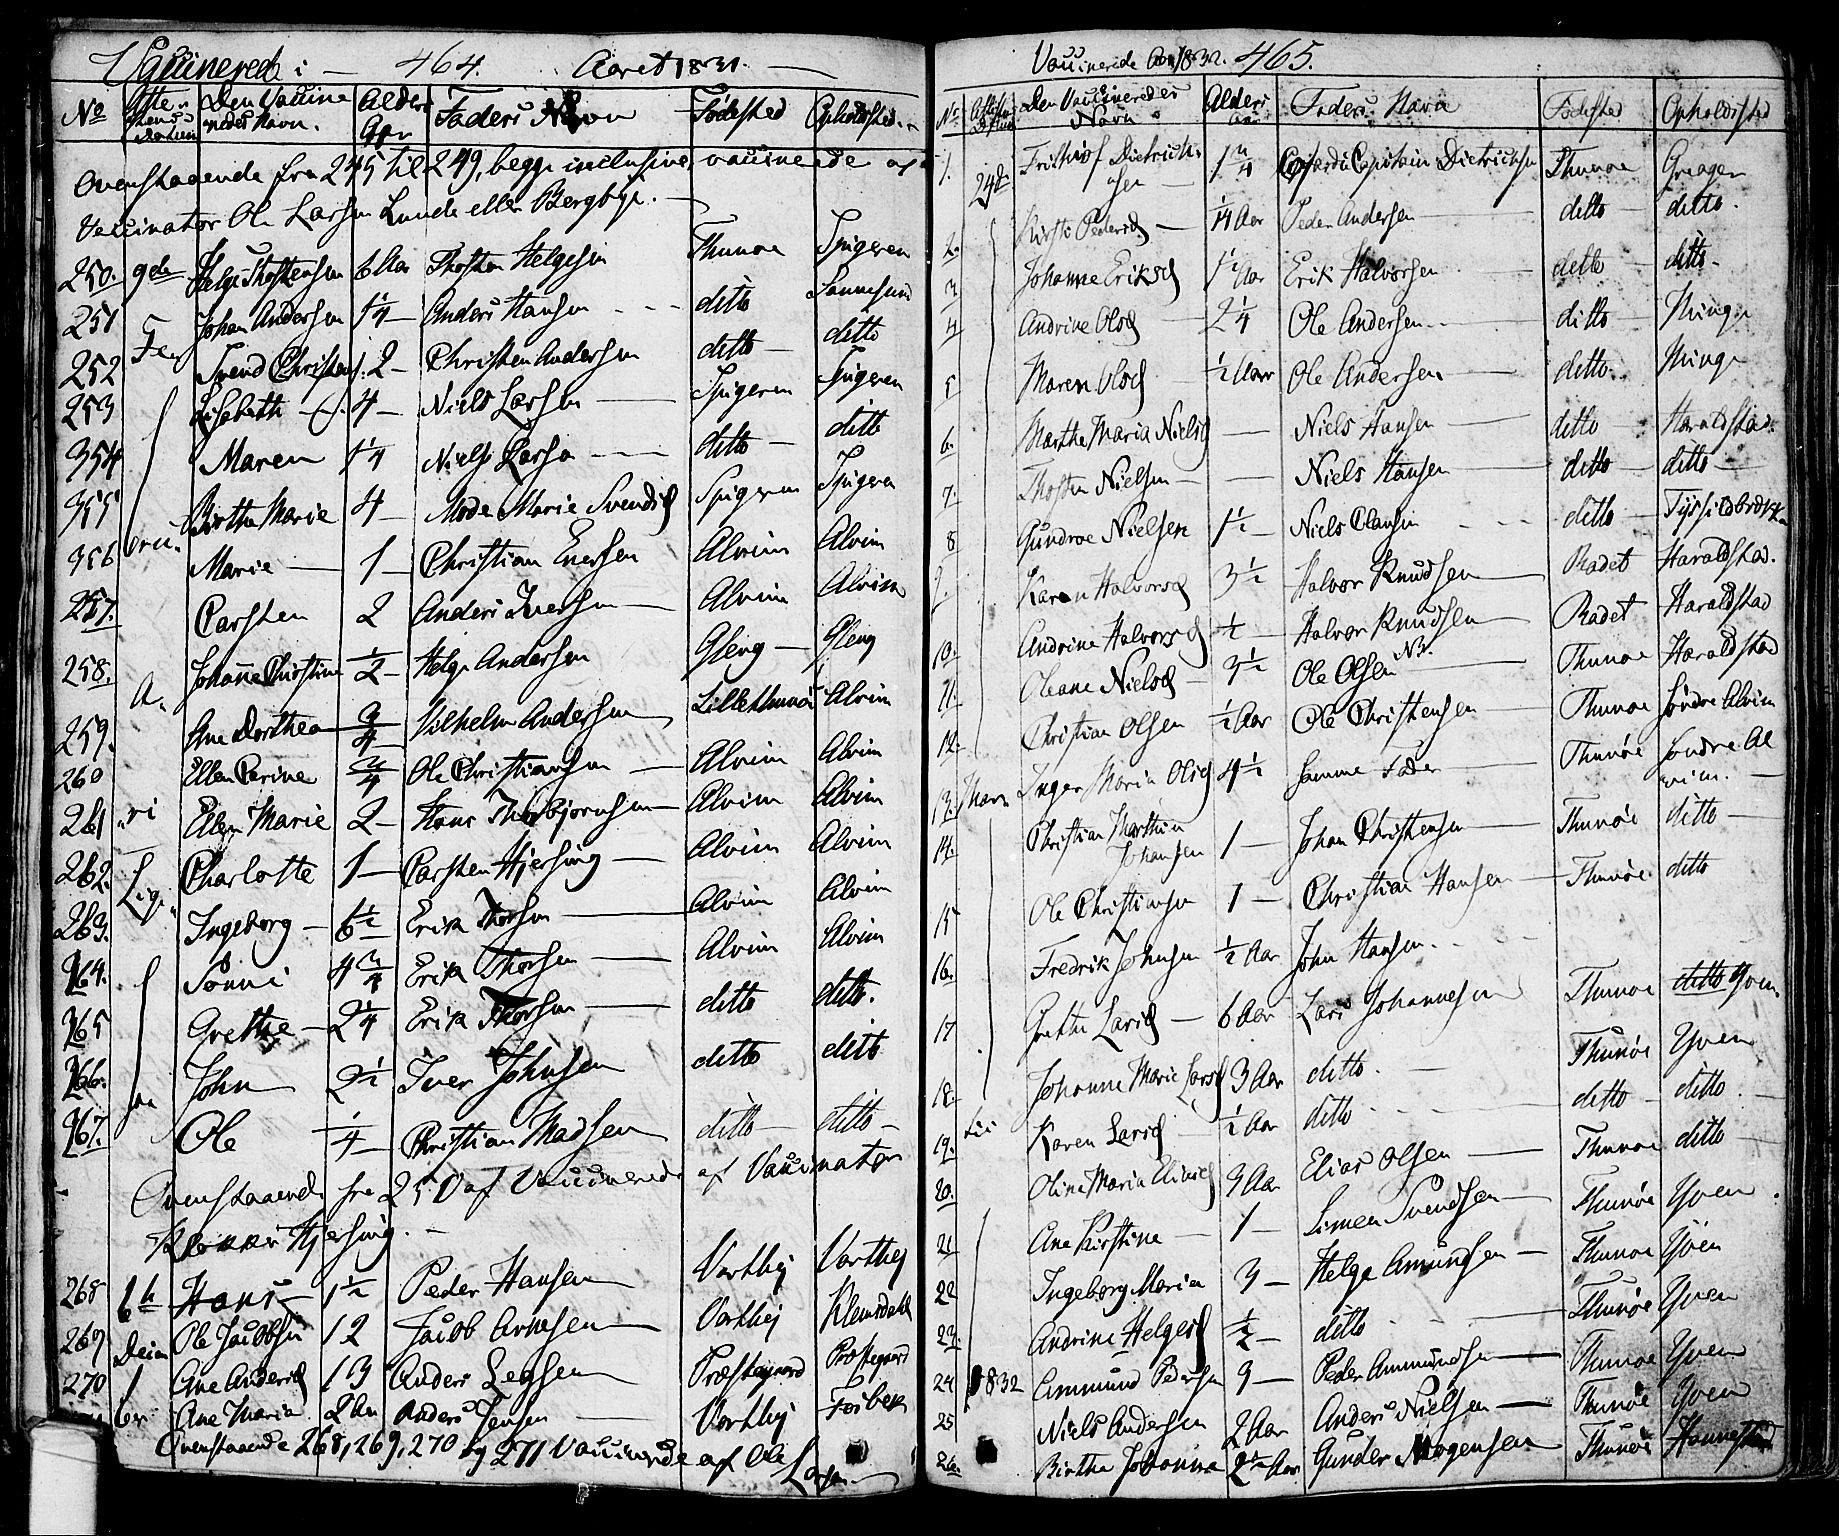 Vauinerede i — 464. Aaret 1831. —
No Den Vauine Alder Faders Navn Fødested Opholdsted
redes Navn. Aar
Ovenstaaende fra 245 til 249, begge inclusive, vauinerede af
Vauinator Ole Larsen Lunde eller Bergbye. —
250. 9de Helge Thostensen 6 Aar Thosten Helgesen Thunøe Spigeren
251 Johan Andersen 1¼ — Anders Hansen ditto Sannesund
252 Svend Christens. 2 — Christen Andersen ditto — ditto
253 Lisabeth 4 — Niels Larsen — Spigeren Spigeren
354 Maren 1¼ Niels Larsen ditto — ditto
355 Birthe Marie 4 — Mode Marie Svendsd Spigeren Spigeren
356 Marie — 1 — Christian Enersen Alvim Alvim
257. Carsten 2 Anders Iversen — Alvim Alvim
258. Johanne Christine ½ — Helge Andersen Gleng — Gleng
259. Ane Dorthea ¾ Vilhelm Andersen Lillethunøe Alvim
260 Ellen Perine ¾ Ole Christiansen — Alvim Alvim
261 Ellen Marie 2 — Hans Thorbjørnsen — Alvim Alvim
262. Charlotte 1 — Carsten Hjersing — Alvim Alvim
263. Ingeborg — 6½ Erik Thorsen — Alvim Alvim
264. Sønni 4¾ Erik Thorsen — Alvim Alvim
265 Grethe — 2¼ Erik Thorsen — ditto ditto.
266. John 2½ Iver Johnsen ditto ditto
267. Ole ¼ — Christian Madsen ditto — ditto —
Ovenstaaende fra 250 af Vauinerede af Vauinator
Hjersing. —
268 6te Hans — 1½ Peder Hansen Varthej Varthej
269 Ole Jacobsen 12 Jacob Arnesen Varthej Klemsdahl
270 Ane Andersd 13 Anders Præstegaard Præstegaard
Ane Maria 2 Anders Jensen Varthej
Ovenstaaende 268, 269, 270 og 271 Vauinerede af Ole Larsen —
Vauinerede Aar 1832. 465.
No. Den Vauineredes Navn Alders Aar Faders Navn Fødested Opholdsted
1. 24de Frithiof Dietrichsen — 1¾ Capitain Dietrichsen Thunøe Greager
2. Kirsti Pedersd — ¼ Aar Peder Andersen — ditto — ditto.
3 Johanne Eriksd 1½ Aar Erik Halvorsen ditto ditto —
4 Andrine Olsd 2¼ Ole Andersen ditto — Minge
5 Maren Olsd ½ Aar Ole Andersen — ditto — Minge
6. Marthe Maria Nielsd — Niels Hansen — ditto Haraldstad.
7. Thosten Nielsen — — Niels Hansen ditto — ditto —
8 Gundroe Nielsen 1½ — Niels Clausen ditto —
9. Karen Halvorsd 3½ Halvor Knudsen — Radet Haraldstad.
10. Andrine Halvorsd ½ — Halvor Knudsen Radet Haraldstad
11. Oleane Nielsd — 3½ Ole Olsen — Thunøe Haraldstad
12. Christian Olsen ½ Aar Ole Christensen — Thunøe Søndre Alvim
13. Marts Inger Maria Olsd 4½ Samme Fader Thunøe Søndre Alvim. —
14. Christian Marthin Johansen 1 — Johan Christensen — Thunøe ditto —
15 Ole Christiansen 1 — Christian Hansen — Thunøe ditto
16. Fredrik Johnsen ½ Aar John Hansen.
17 Grethe Larsd — 6 Aar Lars Johannesen Thunøe ditto Yven.
18. Johanne Marie Larsd 3 Aar ditto. — Thunøe Yven
19. Karen Larsd — ½ Aar ditto ditto — ditto. —
20. Oline Maria Eliasd 3 Aar Elias Olsen — Thunøe ditto —
21 Ane Kirstine — 1 — Simen Svendsen — Thunøe Yven.
22 Ingeborg Maria 3 — Helge Amundsen — Thunøe Yven
23. Andrine Helgesd ½ — ditto — Thunøe Yven
24 1832 Ammund Pedersen 9 — Peder Ammundsen — Thunøe Yven
25 Niels Andersen 2 Aar Anders Nielsen — Thunøe Yven
26. Birthe Johanne 2½ Aar Gunder Mogensen Thunøe Hannestad